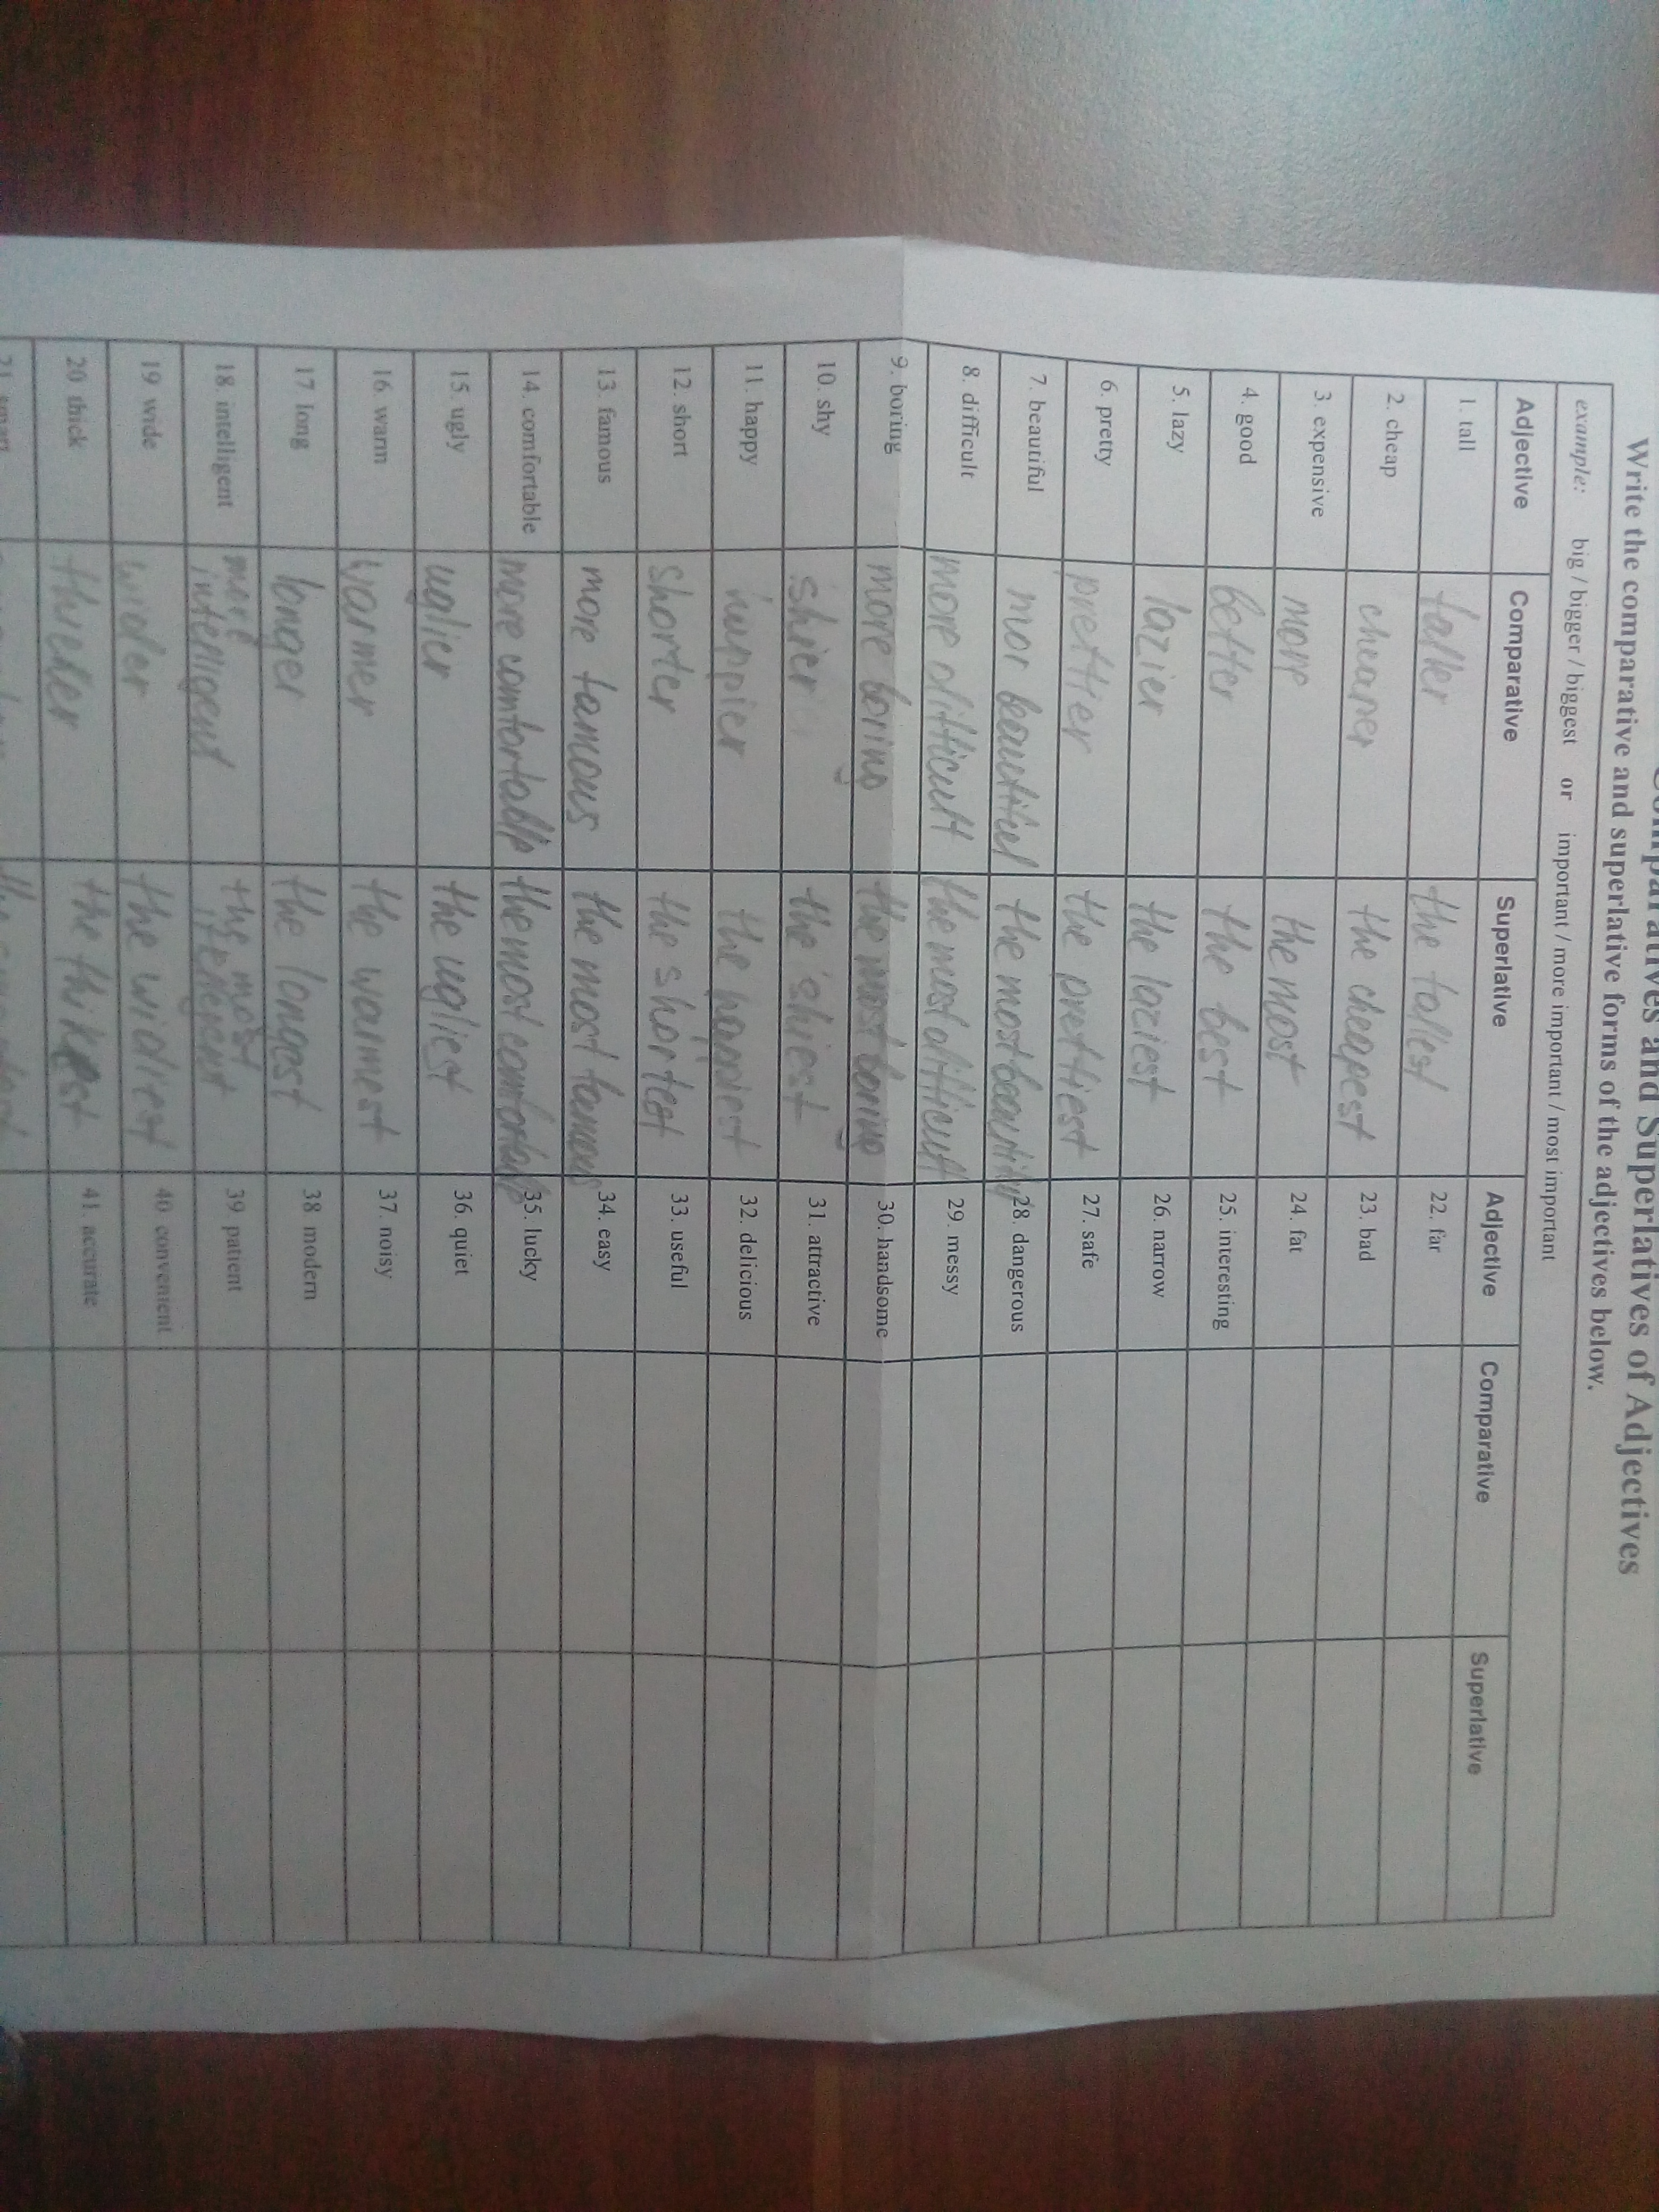 Comparatives and Superlatives of Adjectives
Write the comparative and superlative forms of the adjectives below.
example: big / bigger / biggest or important / more important / most important
Adjective Comparative Superlative Adjective Comparative Superlative
1. tall taller the tallest 22. far
2. cheap cheaper the cheapest 23. bad
3. expensive more the most 24. fat
4. good better the best 25. interesting
5. lazy lazier the laziest 26. narrow
6. pretty prettier the prettiest 27. safe
7. beautiful mor beautiful the most beautiful 28. dangerous
8. difficult more difficult the most difficult 29. messy
9. boring more boring the most boring 30. handsome
10. shy shier the shiest 31. attractive
11. happy happier the happiest 32. delicious
12. short shorter the shortest 33. useful
13. famous more famous the most famous 34. easy
14. comfortable more comfortable the most comfortable 35. lucky
15. ugly uglier the ugliest 36. quiet
16. warm warmer the warmest 37. noisy
17 long longer the longest 38 modern
18. intelligent more intelligent the most 39 patient
19 wide wider the widiest 40 convenient
20 thick thicker the thikest 41 accurate
21 smart